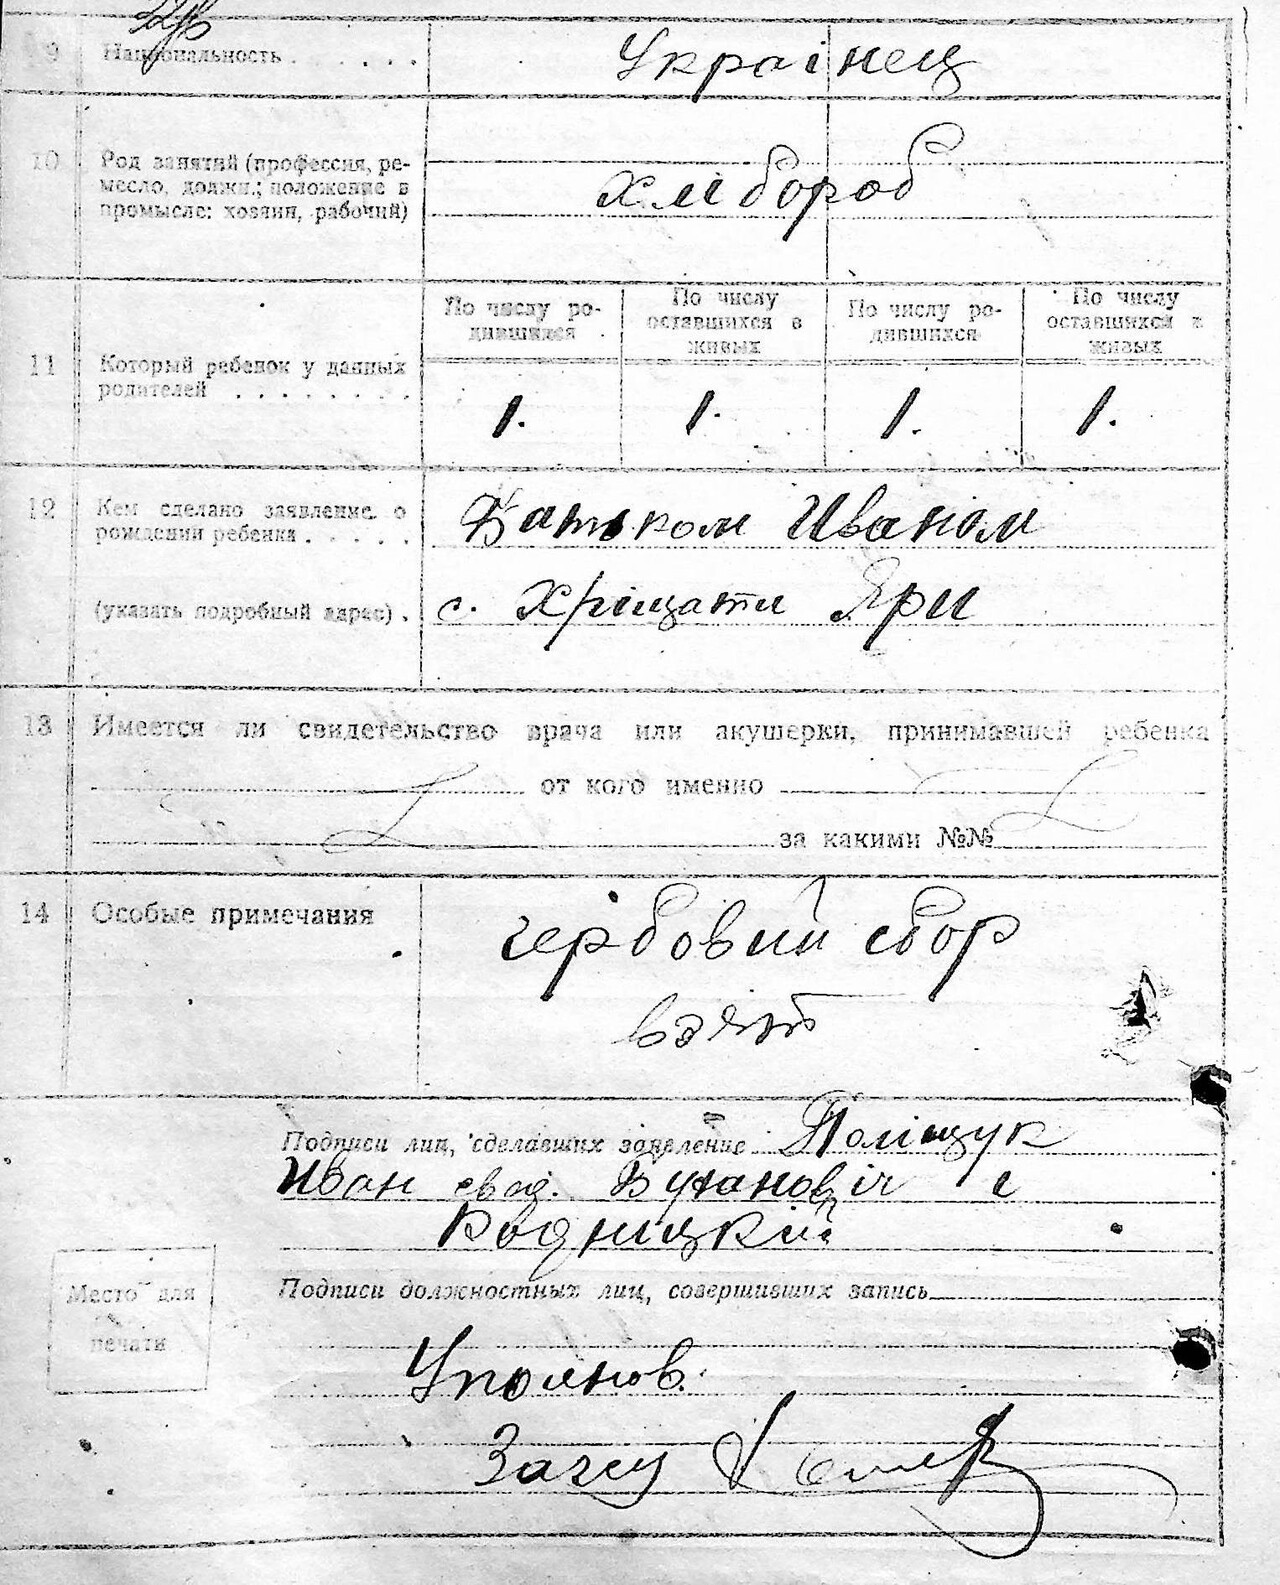 9 Национальность . . . . . . Украінец
10 Род занятий (профессия, ре-
месло, должн.; положение в
промысле: хозяин, рабочий)
хлібороб
По числу ро-
дившихся
По числу
оставшихся в
живых
По числу ро-
дившихся
По числу
оставшихся в
живых
11 Который ребенок у данных
родителей . . . . . . . .
1. 1. 1. 1.
12 Кем сделано заявление о
рождении ребенка . . . . .
Батьком Иваном
(указать подробный адрес) . с. Хріщати Яри
13 Имеется ли свидетельство врача или акушерки, принимавшей ребенка
от кого именно
за какими №№
14 Особые примечания
гербовий сбор
взят
Подписи лиц, сделавших заявление Поліщук
Иван свод. і
Место для
печати
Подписи должностных лиц, совершивших запись
Уполнов.
Загсу